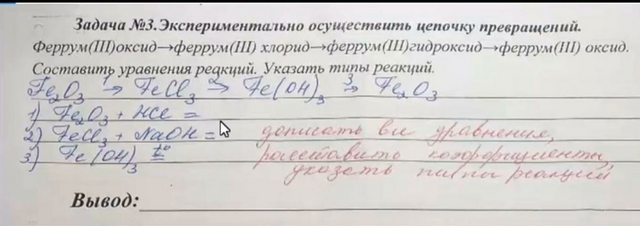 Задача №3.Экспериментально осуществить цепочку превращений.
Феррум(III)оксид→феррум(III) хлорид→феррум(III)гидроксид→феррум(III) оксид.
Составить уравнения реакций. Указать типы реакций.
Fe₂O₃ →¹ FeCl₃ →² Fe(OH)₃ →³ Fe₂O₃
1) Fe₂O₃ + HCl =
2) FeCl₃ + NaOH = дописать ви уравнения,
3) Fe(OH)₃ =t° расставить коэффициенты,
указать типы реакций
Вывод: